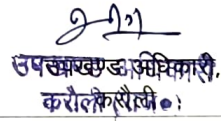 उपखण्ड अधिकारी,
करौली